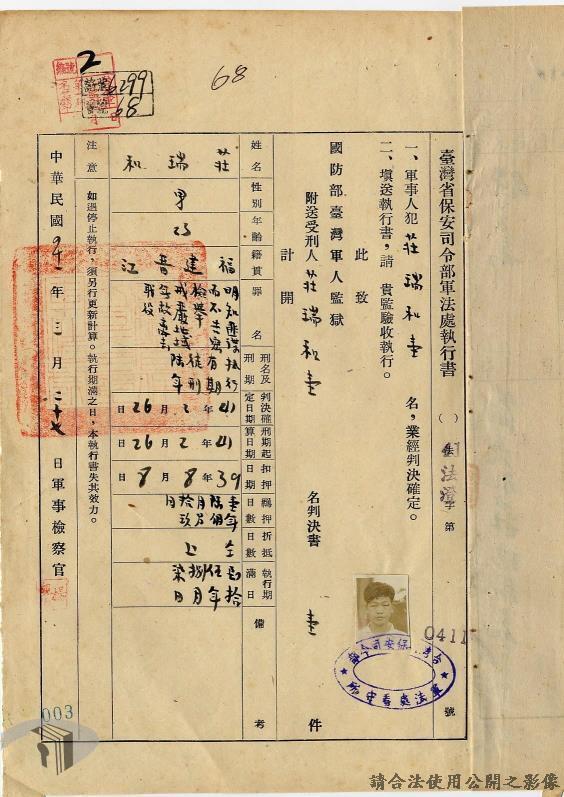 2
68
6299
68
臺灣省保安司令部軍法處執行書
( )
法澄字第
0411
號
一、軍事人犯莊瑞和壹名，業經判決確定。
二、填送執行書，請 貴監驗收執行。
此致
國防部臺灣軍人監獄
附送受刑人莊瑞和壹名判決書壹件
計開
姓名 莊瑞和
性別 男
年齡 23
籍貫 福建晉江
罪名 明知匪諜而不告密檢舉 戒嚴地域無故離去職役
刑名及刑期 執行有期徒刑陸年
判決確定日期 41年2月26日
刑期起算日期 41年2月26日
扣押日期 39年8月8日
羈押日數 壹年陸個月拾玖日
折抵日數 仝上
執行期滿日 四拾伍年捌月柒日
備考
注意 如遇停止執行，須另行更新計算。執行期滿之日，本執行書失其效力。
中華民國41年三月二十七日軍事檢察官
003
請合法使用公開之影像